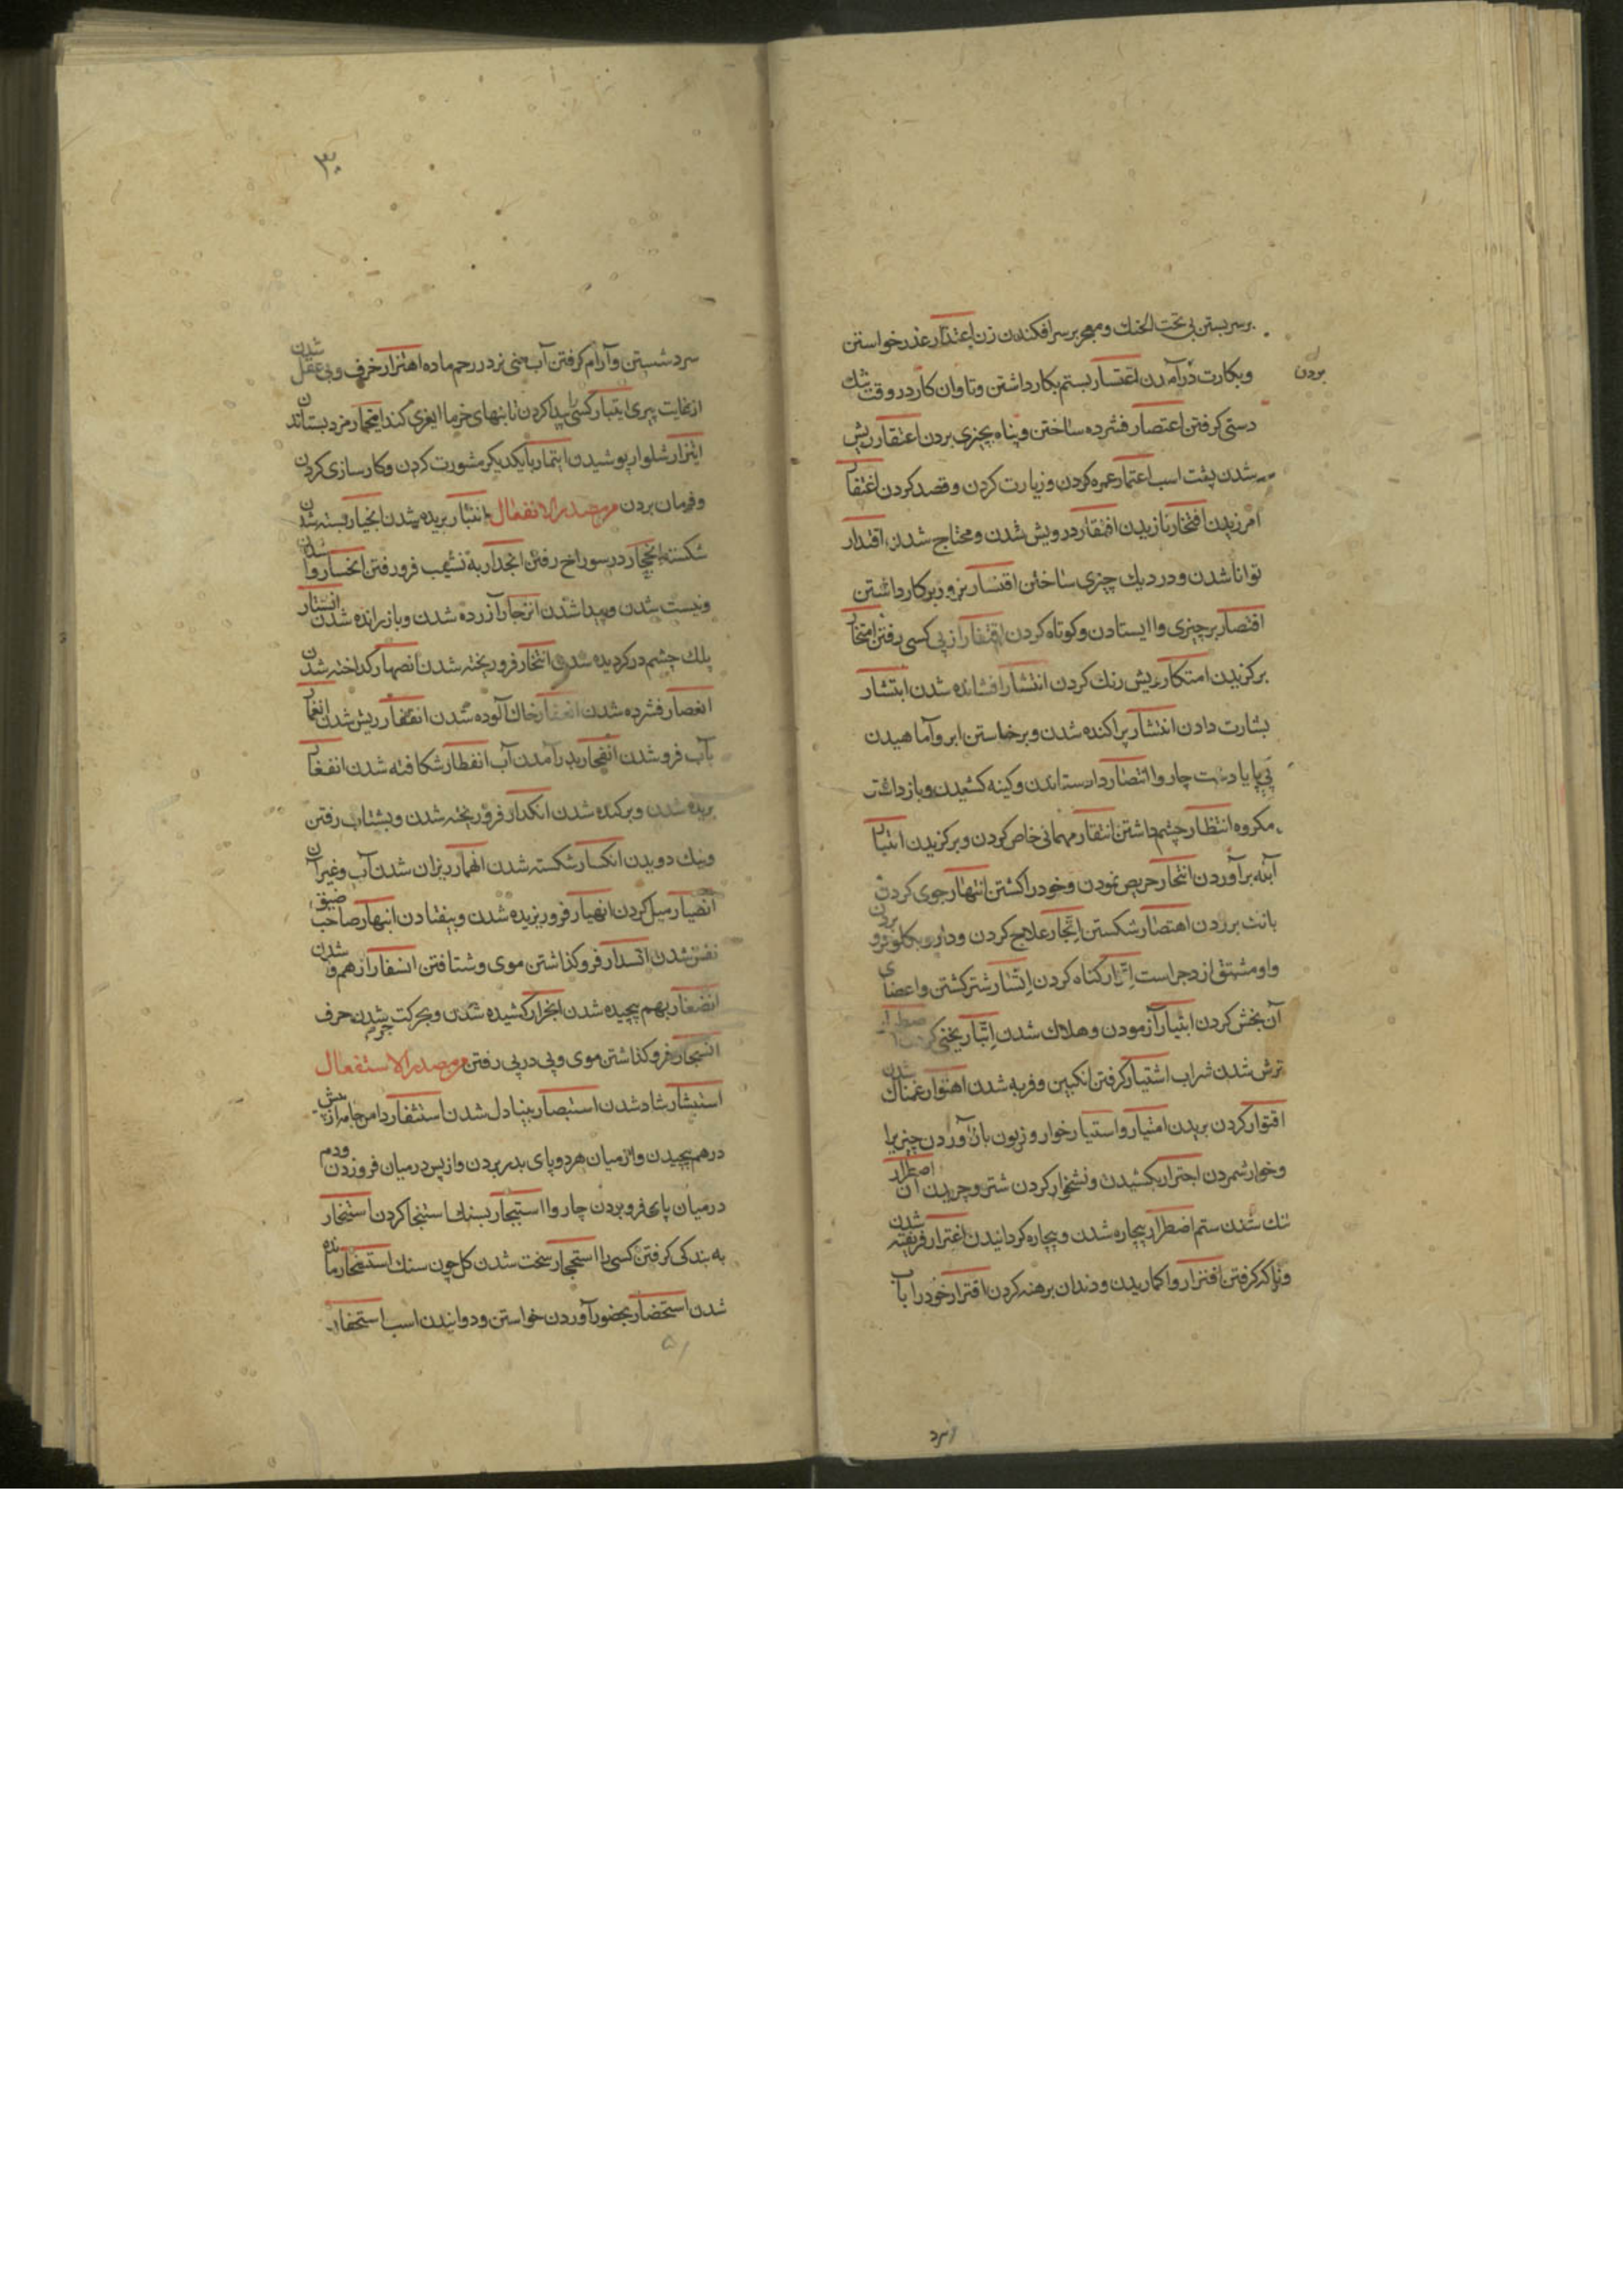 برسر بستن بی تحت الحنك ومعجر برسر افکندن زن اعتذار عذر خواستن
وبکارت درآمدن اعتسار بستم بکار داشتن وتاوان کار در وقت تنك
بردن
دستی کرفتن اعتصار فشرده ساختن وپناه بچیزی بردن اعتقار ریش
شدن پشت اسب اعتمار عمره کردن وزیارت کردن وقصد کردن اغتفار
امرزیدن افتخار نازیدن افتقار درویش شدن ومحتاج شدن اقتدار
توانا شدن ودر دیك چیزی ساختن اقتسار بزور بر کار داشتن
اقتصار بر چیزی وا ایستادن وکوتاه کردن اقتفار از پی کسی رفتن امتخار
برکزیدن امتکار ریش رنك کردن انتشار افشانده شدن ابتشار
بشارت دادن انتشار پراکنده شدن وبرخاستن ابر وآماهیدن
پی پا یا دست چاروا انتصار داد ستاندن وکینه کشیدن وباز داشتن
مکروه انتظار چشم داشتن انتقار مهمانی خاص کردن وبرکزیدن انتبار
آبله برآوردن انتحار حریص نمودن وخود را کشتن انتهار جوی کردن
بانك برزدن اهتصار شکستن اتجار علاج کردن ودارو بکلو فرو بردن
واو مشتق از دجر است اتزار کناه کردن اتسار شتر کشتن واعضای
آن بخش کردن ابتیار آزمودن وهلاك شدن اتبار یخنی کردن
ترش شدن شراب اشتیار کرفتن انکبین وفربه شدن اهتوار غمناك شدن
اقتوار کردن بریدن امتیار واستیار خوار وزبون بار آوردن چیزیرا
وخوار شمردن اجترار بکشیدن ونشخوار کردن شتر وچریدن آن اصطرار
تنك شدن ستم اضطرار بیچاره شدن وبیچاره کردانیدن اغترار فریفته شدن
وناکه کرفتن افترار واکماریدن ودندان برهنه کردن اقترار خود را بآب
سرد
۳۰
سرد شستن وآرام کرفتن آب منی نر در رحم ماده اهترار خرف وبی عقل شدن
از غایت پیری ایتبار کسی را پیدا کردن تا بنهای خرما ایغری کند ایتجار مزد بستاندن
ایتزار شلوار پوشیدن ایتمار بایکدیکر مشورت کردن وکار سازی کردن
وفرمان بردن مرمصدر الانفعال انتبار بریده شدن انجبار بسته شدن
شکسته انجحار در سوراخ رفتن انحدار به نشیب فرو رفتن انحسار وا شدن
ونیست شدن وپیدا شدن انزجار آزرده شدن وباز رانده شدن انشتار
پلك چشم در کردیده شدن انتخار فرو ریخته شدن انصهار کداخته شدن
انعصار فشرده شدن انعفار خاك آلوده شدن انعقار ریش شدن انغمار
بآب فرو شدن انفجار بدر آمدن آب انفطار شکافته شدن انقعار
بریده شدن وبرکنده شدن انکدار فرو ریخته شدن وبشتاب رفتن
ونیك دویدن انکسار شکسته شدن انهمار ریزان شدن آب وغیر آن
انصیار میل کردن انهیار فرو ریزیده شدن وبیفتادن انبهار صاحب ضیق
نفس شدن انسدار فرو کذاشتن موی وشتافتن انسفار از هم وا شدن
انضفار بهم پیچیده شدن انجرار کشیده شدن وبحرکت جر شدن حرف
انسجار فرو کذاشتن موی وپی در پی رفتن مرمصدر الاستفعال
استبشار شاد شدن استبصار بینا دل شدن استثفار دامن جامه از پیش
درهم پیچیدن واز میان هر دو پای بدر بردن واز پس در میان فرو زدن ودم
در میان پای فرو بردن چاروا استجمار بسنك استنجا کردن استخار
به بندکی کرفتن کسی را استحجار سخت شدن کل چون سنك استفخار مانده
شدن استحضار بحضور آوردن خواستن ودوانیدن اسب استحفار